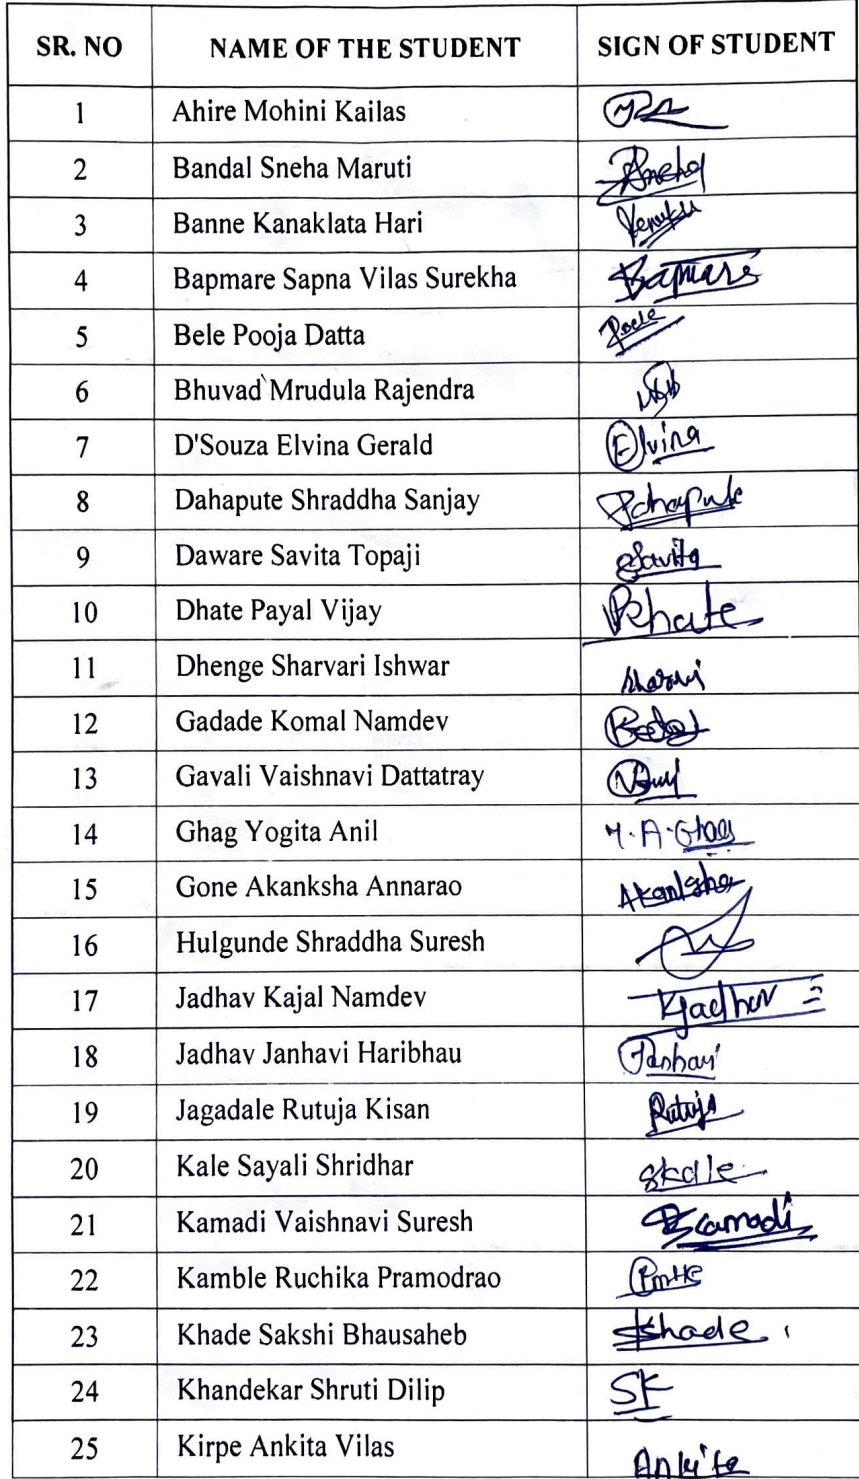 SR. NO NAME OF THE STUDENT SIGN OF STUDENT
1 Ahire Mohini Kailas
2 Bandal Sneha Maruti Sneha
3 Banne Kanaklata Hari
4 Bapmare Sapna Vilas Surekha Bapmare
5 Bele Pooja Datta
6 Bhuvad Mrudula Rajendra
7 D'Souza Elvina Gerald Elvina
8 Dahapute Shraddha Sanjay
9 Daware Savita Topaji Savita
10 Dhate Payal Vijay
11 Dhenge Sharvari Ishwar
12 Gadade Komal Namdev
13 Gavali Vaishnavi Dattatray
14 Ghag Yogita Anil Y.A.Ghag
15 Gone Akanksha Annarao Akanksha
16 Hulgunde Shraddha Suresh
17 Jadhav Kajal Namdev KJadhav
18 Jadhav Janhavi Haribhau Janhavi
19 Jagadale Rutuja Kisan Rutuja
20 Kale Sayali Shridhar Skale
21 Kamadi Vaishnavi Suresh Kamadi
22 Kamble Ruchika Pramodrao
23 Khade Sakshi Bhausaheb Khade
24 Khandekar Shruti Dilip SK
25 Kirpe Ankita Vilas Ankita